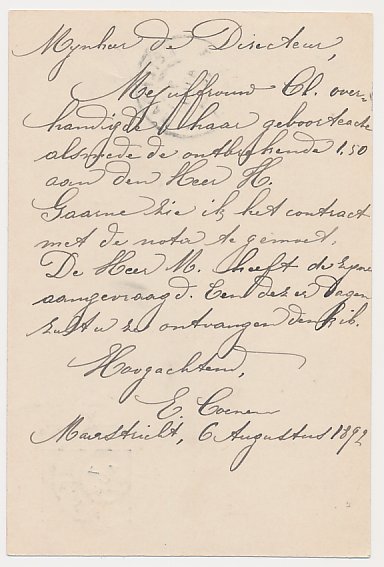 Mijnheer de Directeur,
Mejuffrouw Cl. over-
handigde haar geboorteacte
alsmede de ontbrekende 1.50
aan den Heer H.
Gaarne zie ik het contract
met de nota te gemoet.
De Heer M. heeft de zijne
aangevraagd. Een dezer dagen
zult U ze ontvangen denk ik.
Hoogachtend,
E. Coenen
Maastricht, 6 Augustus 1892